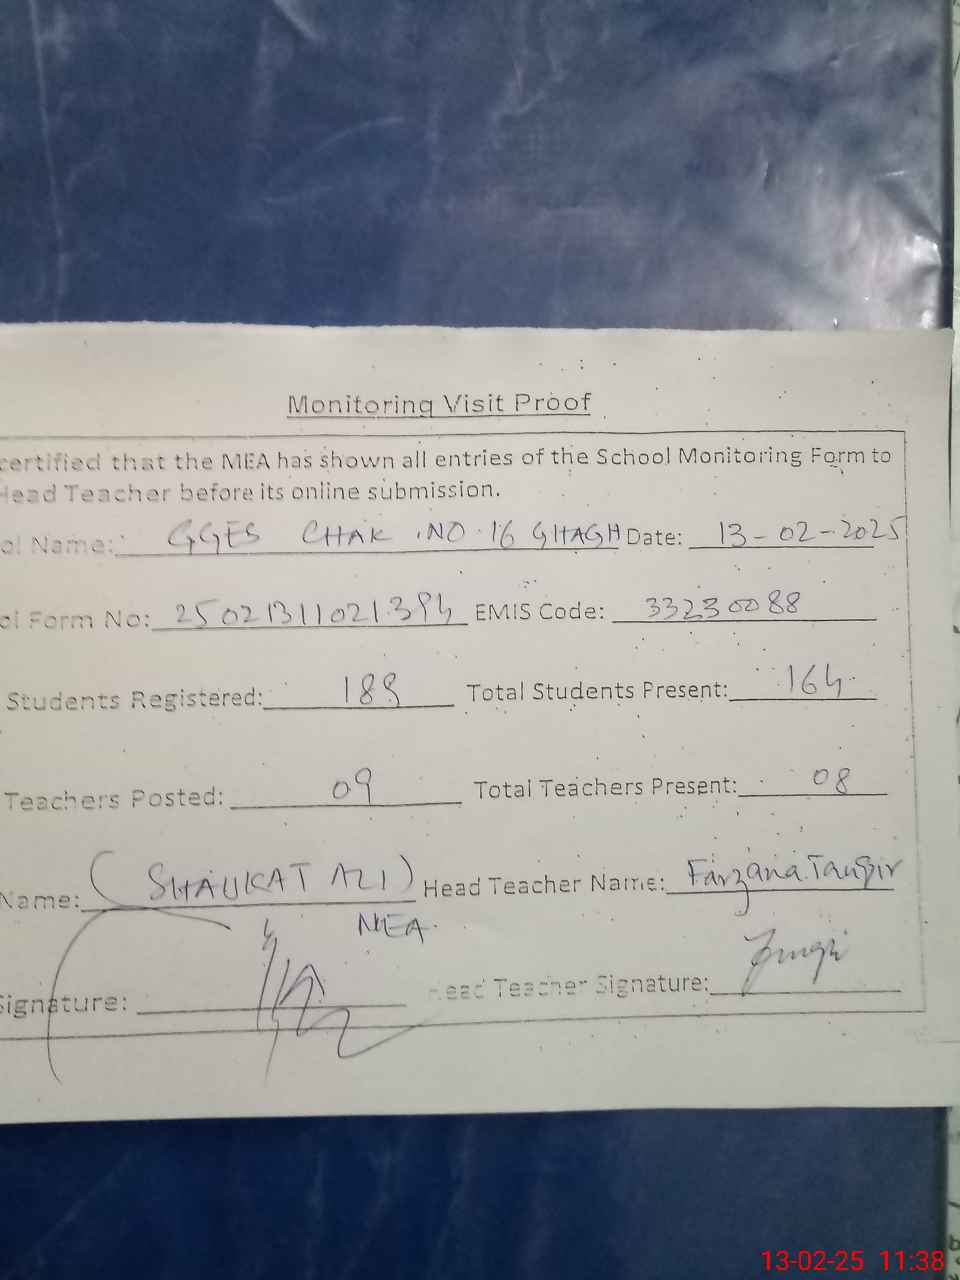 Monitoring Visit Proof
certified that the MEA has shown all entries of the School Monitoring Form to
Head Teacher before its online submission.
ol Name: GGES CHAK NO. 16 GHAGH Date: 13-02-2025
ol Form No: 25021311021394 EMIS Code: 33230088
Students Registered: 189 Total Students Present: 164
Teachers Posted: 09 Total Teachers Present: 08
Name: (SHAUKAT ALI) Head Teacher Name: Farzana Tauqir
MEA
Signature: Head Teacher Signature:
13-02-25 11:38